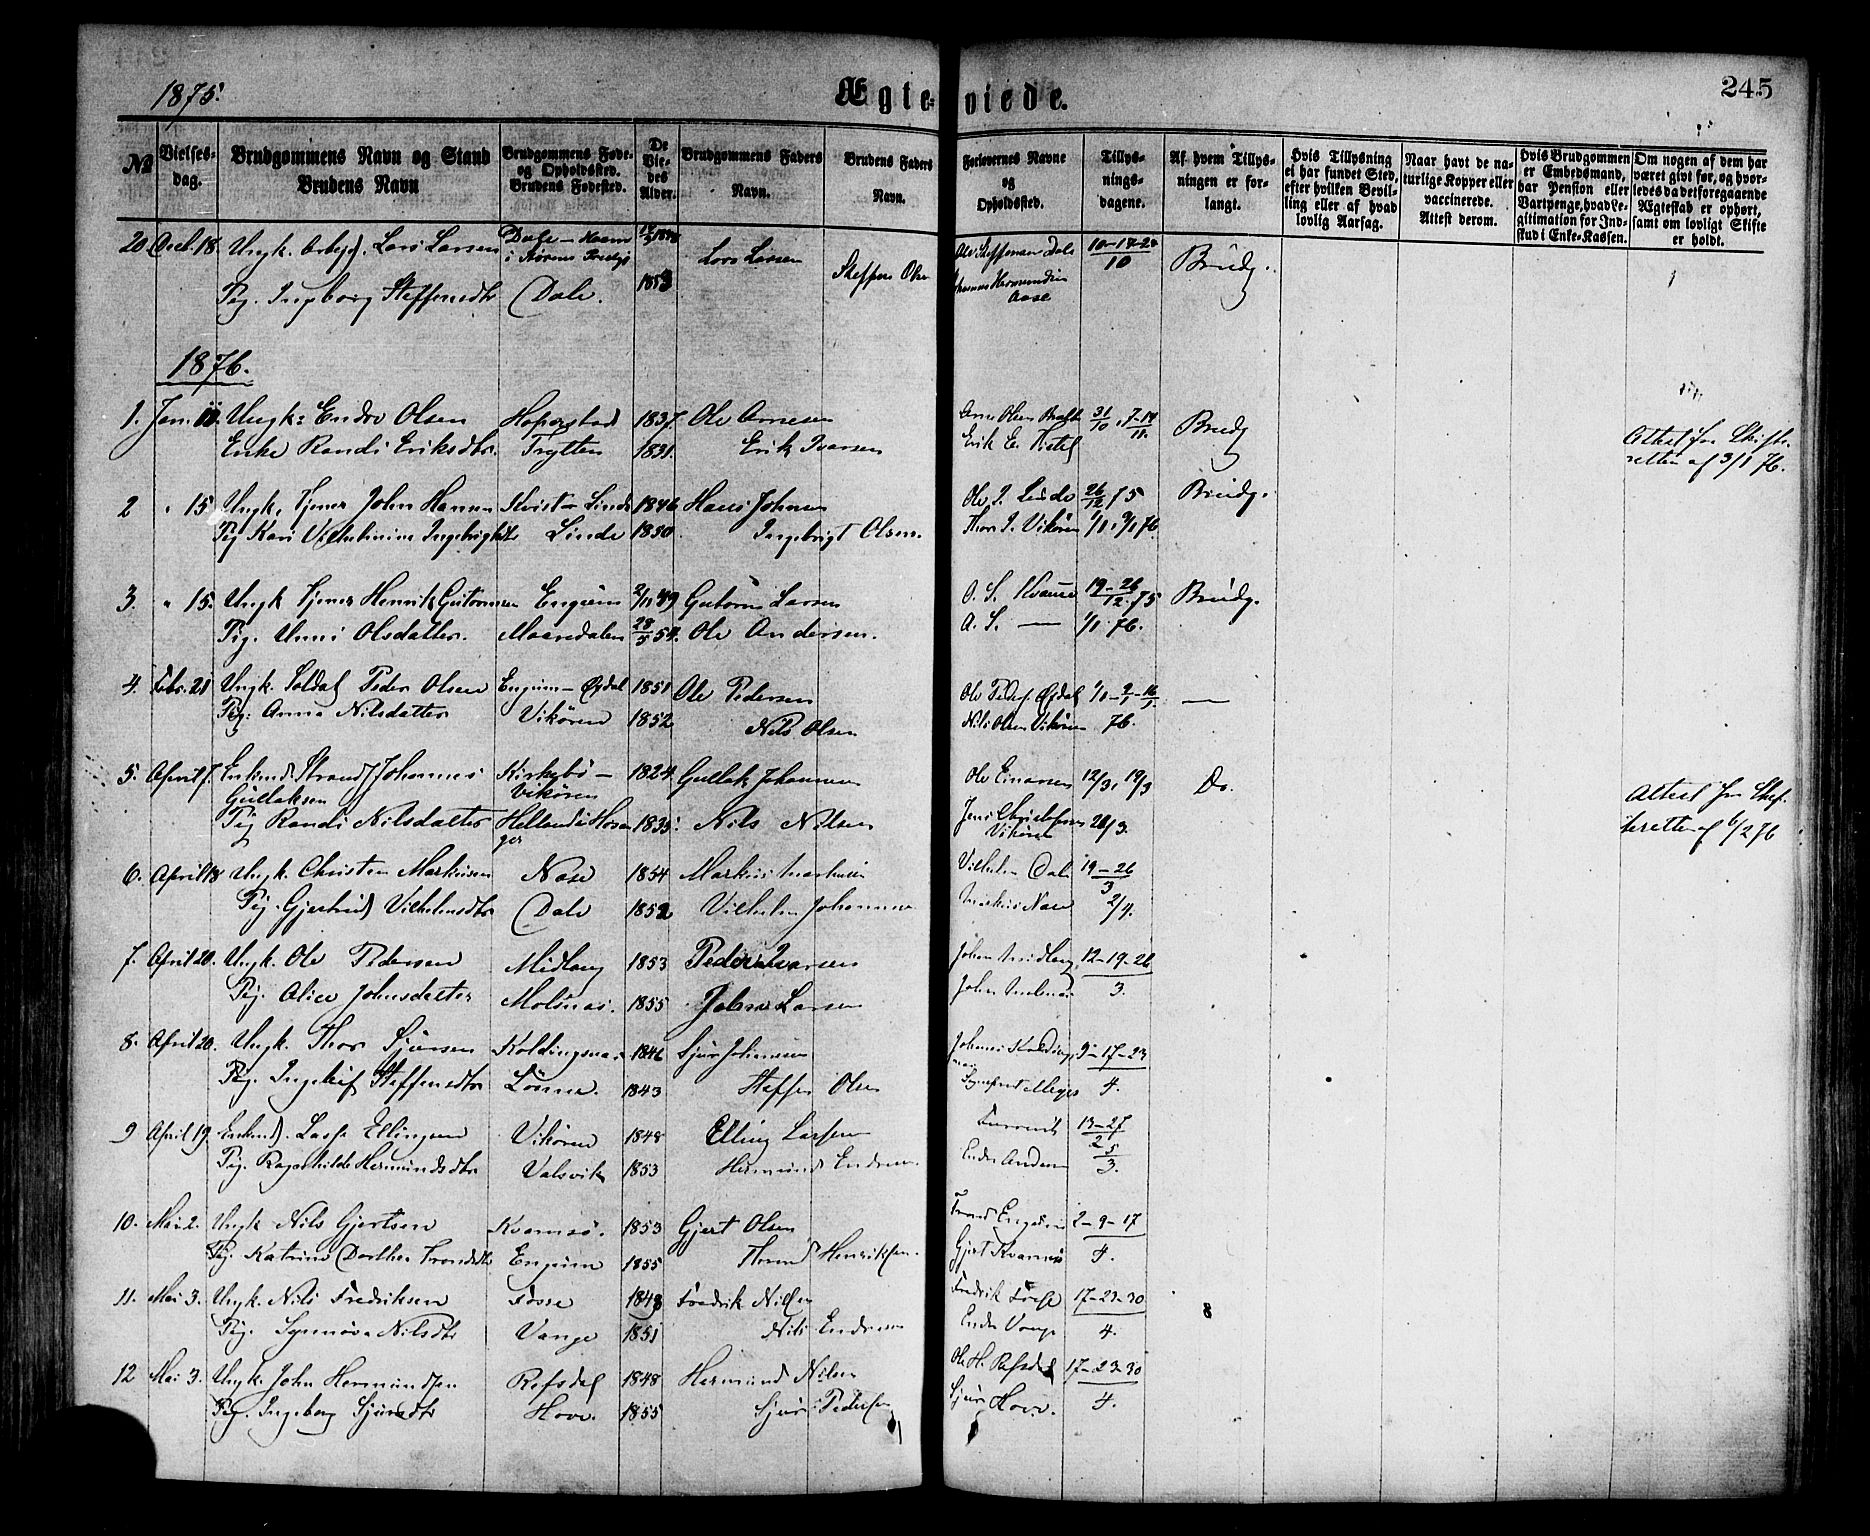 1875.
Ægte-
viede.
245
№
Vielses-
dag.
Brudgommens Navn og Stand
Brudens Navn
Brudgommens Føde-
og Opholdssted.
Brudens Fødested.
De
Vie-
des
Alder.
Brudgommens Faders
Navn.
Brudens Faders
Navn.
Forlovernes Navne
og
Opholdssted.
Tillys-
nings-
dagene.
Af hvem Tillys-
ningen er for-
langt.
Hvis Tillysning
ei har fundet Sted,
efter hvilken Bevil-
ling eller af hvad
lovlig Aarsag.
Naar havt de na-
turlige Kopper eller
vaccinerede.
Attest derom.
Hvis Brudgommen
er Embedsmand,
har Pension eller
Vartpenge, hvad Le-
gitimation for Ind-
skud i Enke-Kassen.
Om nogen af dem har
været gift før, og hvor-
ledes da det foregaaende
Ægteskab er ophørt,
samt om lovligt Skifte
er holdt.
20 Decb. 18. Ungk. Arbejd. Lars Larsen Dale Lars Larsen Ole Steffensen Dale 10-17-24 Brudg.
Pig. Ingeborg Steffensdtr Dale. 1853 Steffen Olsen Hermundsen 10
Aase
1876.
1. Jan. Ungk: Endre Olsen Hopperstad 1837. Ole Arnesen Arne Olsen 31/10, 7-14 Brudg Attest fra Skifte-
Enke Randi Eriksdtr. Trytten 1831. Erik Ivarsen Erik E. 11. retten af 3/1 76.
2 " 15 Ungk. Tjener John Hansen Kvist - Linde 1846 Hans Johnsen Ole J. Linde 26/12 75 Brudg.
Pig Kari Vilhelmine Ingebrigtsdtr Linde 1850. Ingebrigt Olsen. Thor J. Vikören 1/1, 9/1 76.
3. " 15. Ungk Tjener Henrik Guttormsen Engum 2/11 49 Guttorm Larsen A. S. 19-26/12 75 Brudg.
Pig. Unni Olsdatter. Maaredalen 28/5 54. Ole Andersen. A. S. — 1/1 76.
4. Febr. 21 Ungk. Soldat Peder Olsen Engum - Øvdal 1851 Ole Pedersen Ole Peders. Øvdal 1/1-9/1-16/1 —
Pig: Anna Nilsdatter Vikören 1852 Nils Olsen Nils Olsen Vikören 76.
5. April 7. Enkemd Strands. Johannes Kirkebö - 1824. Gullak Johannesen Ole Einarsen 12/3, 19/3 Do. Attest fra Skif-
Gullaksen Vikören
Pig Randi Nilsdatter Helland i Hosan- 1835. Nils Nilsen Jens Christophersen 26/3. teretten af 6/2 76
ger Vikören
6. April 18 Ungk. Christen Markusen Nase 1854 Markus Vilhelm Dale 19-26
3
Pig. Gjertrud Vilhelmsdtr Dale 1852 Vilhelm Johannesen Markus Nase 2/4.
7. April 20. Ungk. Ole Pedersen Midlang 1853 Peder Ivarsen Johan Midlang 12-19-26
Pig. Alice Johnsdatter Molsnæs. 1855 Johns Larsen John 3.
8. April 20. Ungk. Thor Sjursen Koldingsnæs 1846 Sjur Johannesen Johannes Koldings- 9-17-23
Pig. Ingeleif Steffensdtr 1843 Steffen Olsen 4.
9 April 19. Enkemd. Lasse Ellingsen Vikören 1848 Elling Larsen 13-27
2
Pig. Ragnhilde Hermundsdtr Valsvik 1853 Hermund Endresen. Endre Andersen 5
3.
10. Mai 2. Ungk Nils Gjertsen Kvamsö. 1853 Gjert Olsen Trond Engum 2-9-17
Pig. Katrine Dorthea Trondsdtr Engum 1855 Trond Henriksen. Gjert Kvamsö 4.
11. Mai 3. Ungk. Nils Fredriksen Fosse 1848 Fredrik Nilsen Fredrik Fosse 17-23-30
Pig. Synnöva Nilsdtr Vange 1851 Nils Endresen Endre Vange 4.
12 Mai 3. Ungk. John Hermundsen Refsdal 1848 Hermund Nilsen Ole H. Refsdal 17-23-30
Pig. Ingeborg Sjursdtr Hove. 1855 Sjur Pedersen Sjur Hove. 4.